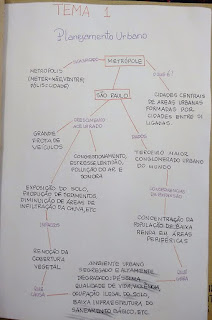 TEMA 1
Planejamento Urbano
METRÓPOLE
SIGNIFICADO
O QUE É?
METRÓPOLIS
(METER=MÃE, VENTRE/
PÓLIS=CIDADE)
SÃO PAULO
CIDADES CENTRAIS
DE ÁREAS URBANAS
FORMADAS POR
CIDADES ENTRE SI
LIGADAS.
DADOS
GRANDE
FROTA DE
VEÍCULOS
CONGESTIONAMENTO,
ESTRESSE, LENTIDÃO,
POLUIÇÃO DO AR E
SONORA
TERCEIRO MAIOR
CONGLOMERADO URBANO
DO MUNDO
EXPOSIÇÃO DO SOLO,
PRODUÇÃO DE SEDIMENTOS,
DIMINUIÇÃO DE ÁREAS DE
INFILTRAÇÃO DA CHUVA, ETC
CONCENTRAÇÃO DA
POPULAÇÃO DE BAIXA
RENDA EM ÁREAS
PERIFÉRICAS
REMOÇÃO DA
COBERTURA
VEGETAL
AMBIENTE URBANO
SEGREGADO E ALTAMENTE
DEGRADADO, PÉSSIMA
QUALIDADE DE VIDA, VIOLÊNCIA
OCUPAÇÃO ILEGAL DO SOLO,
BAIXA INFRAESTRUTURA DO
SANEAMENTO BÁSICO, ETC.